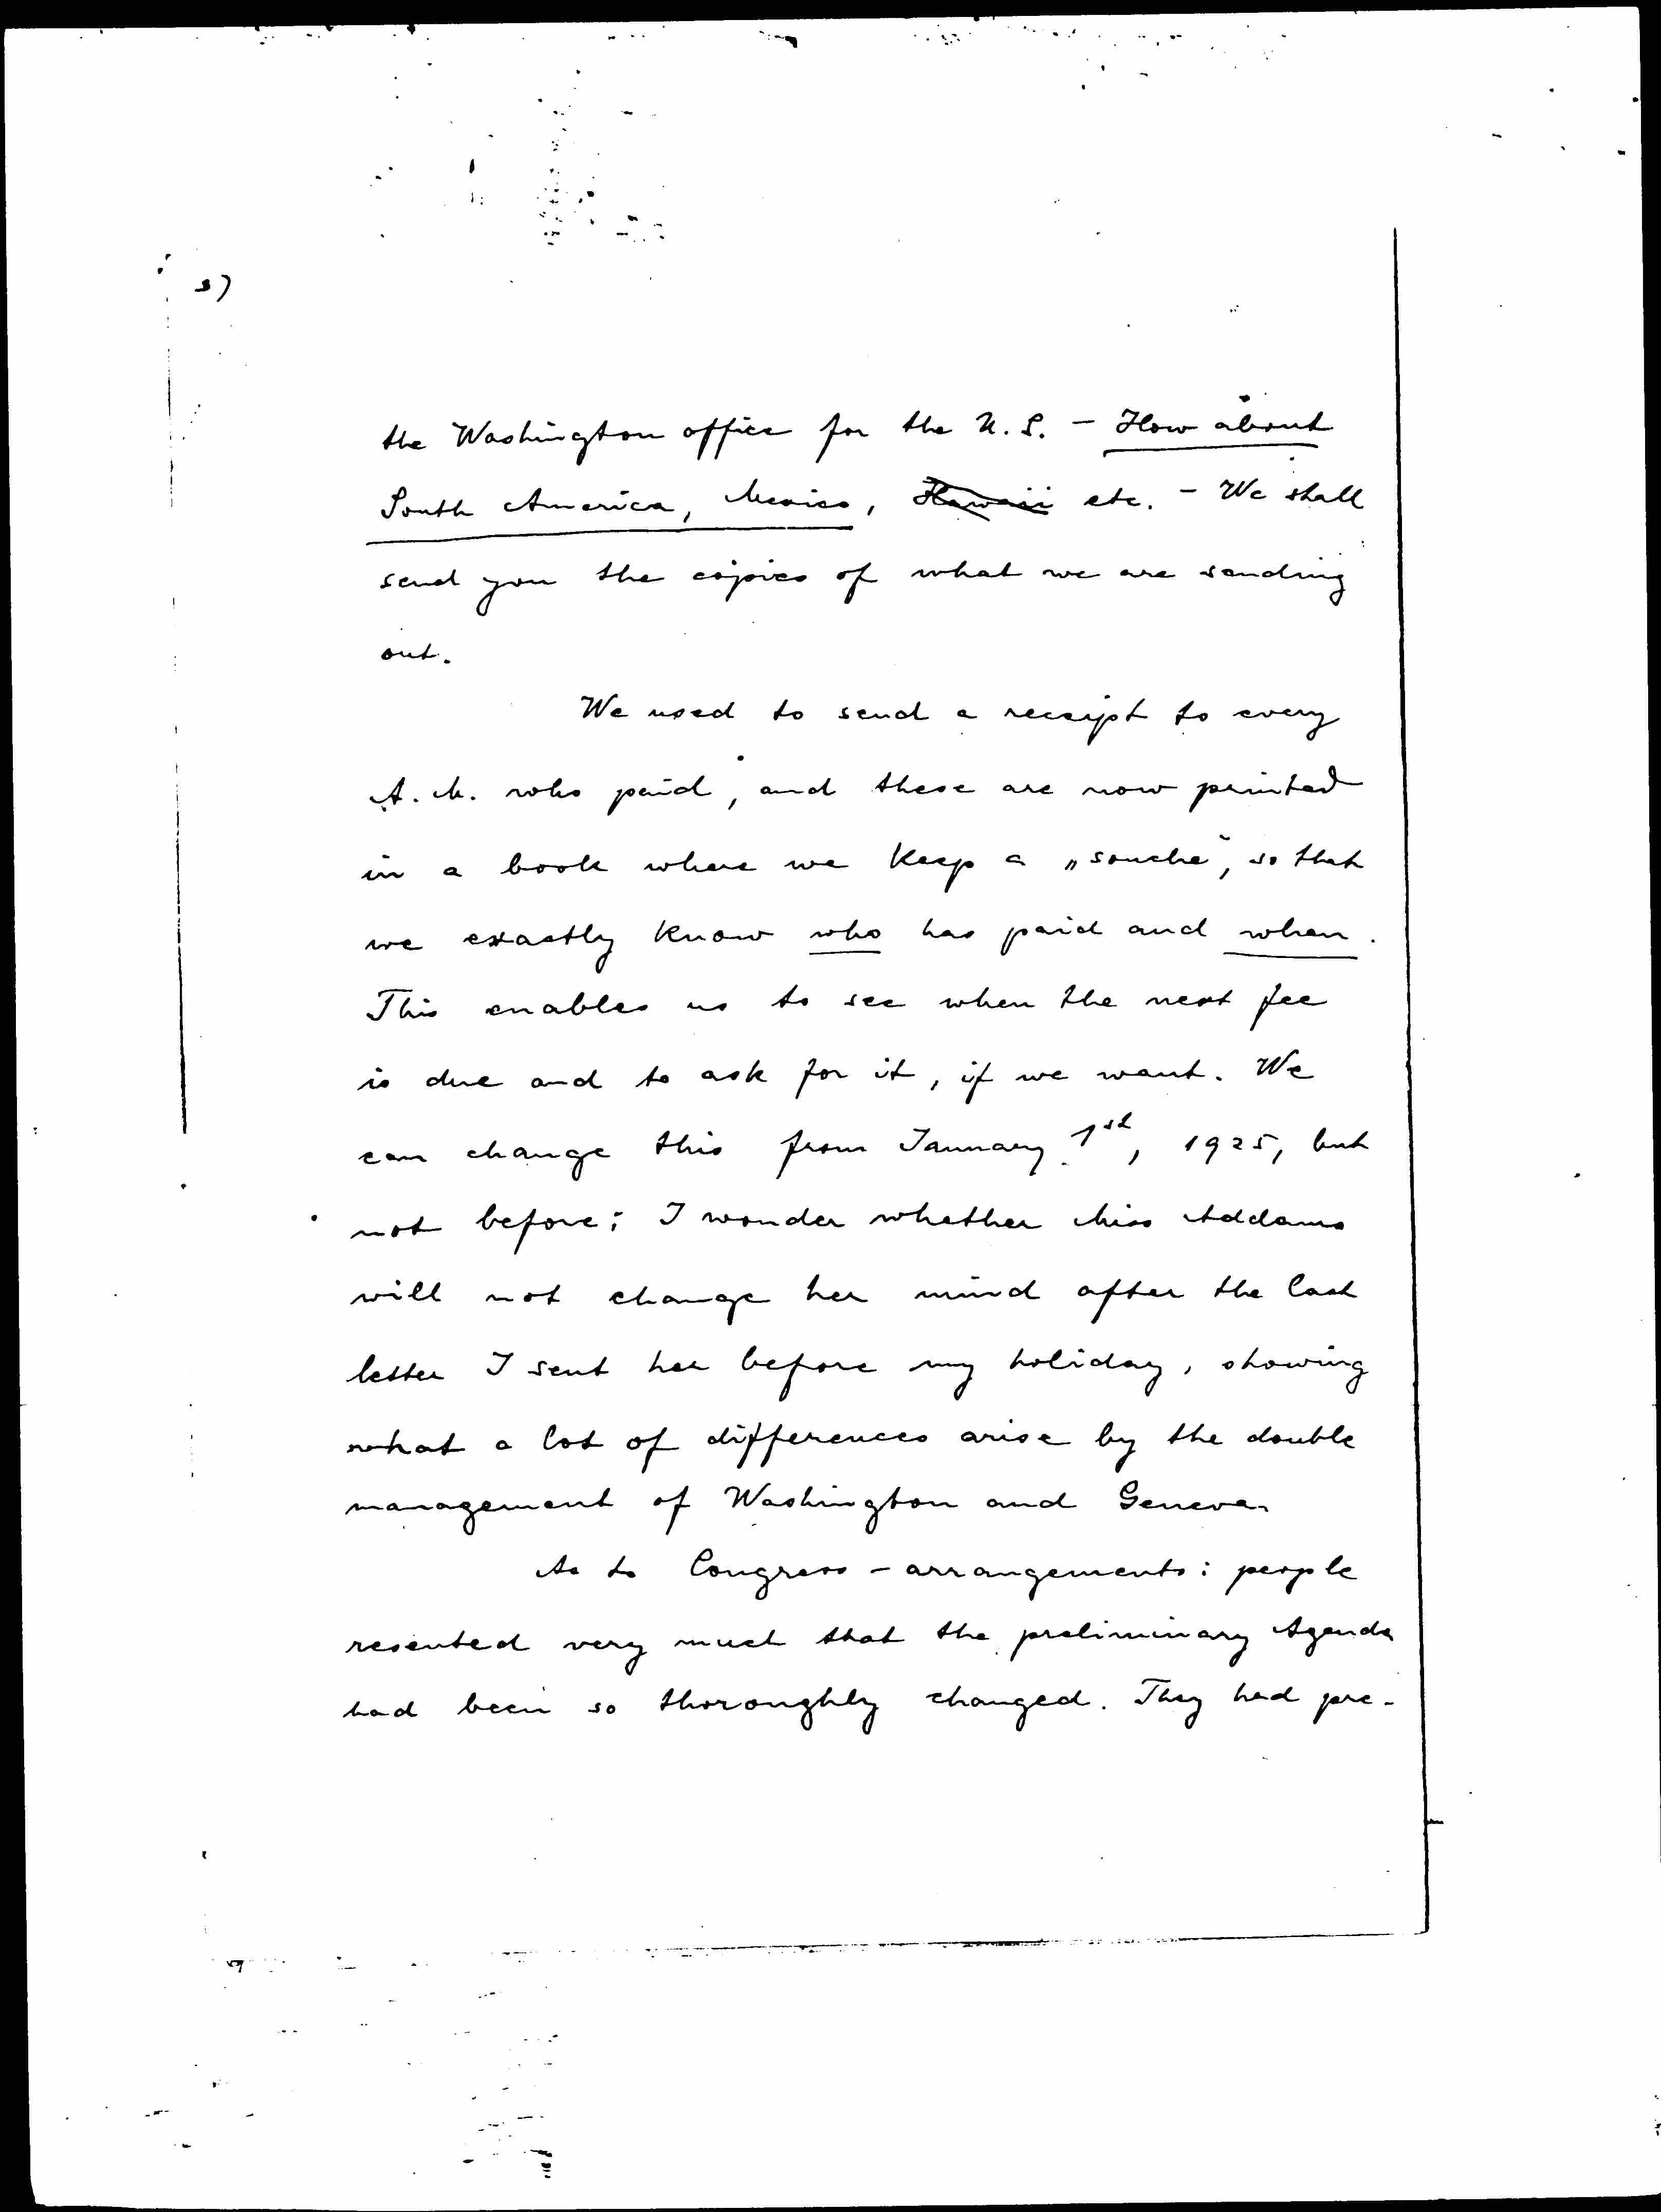 the Washington office for the U.S. – How about
South America, Mexico, Hawaii etc. – We shall
send you the copies of what we are sending
out.
We used to send a receipt to every
A.M. who paid, and these are now printed
in a book where we keep a „souche", so that
we exactly know who has paid and when.
This enables us to see when the next fee
is due and to ask for it, if we want. We
can change this from January 1st, 1925, but
not before; I wonder whether Miss Addams
will not change her mind after the last
letter I sent her before my holiday, showing
what a lot of differences arise by the double
management of Washington and Geneva.
As to Congress-arrangements: people
resented very much that the preliminary Agenda
had been so thoroughly changed. They had pre-